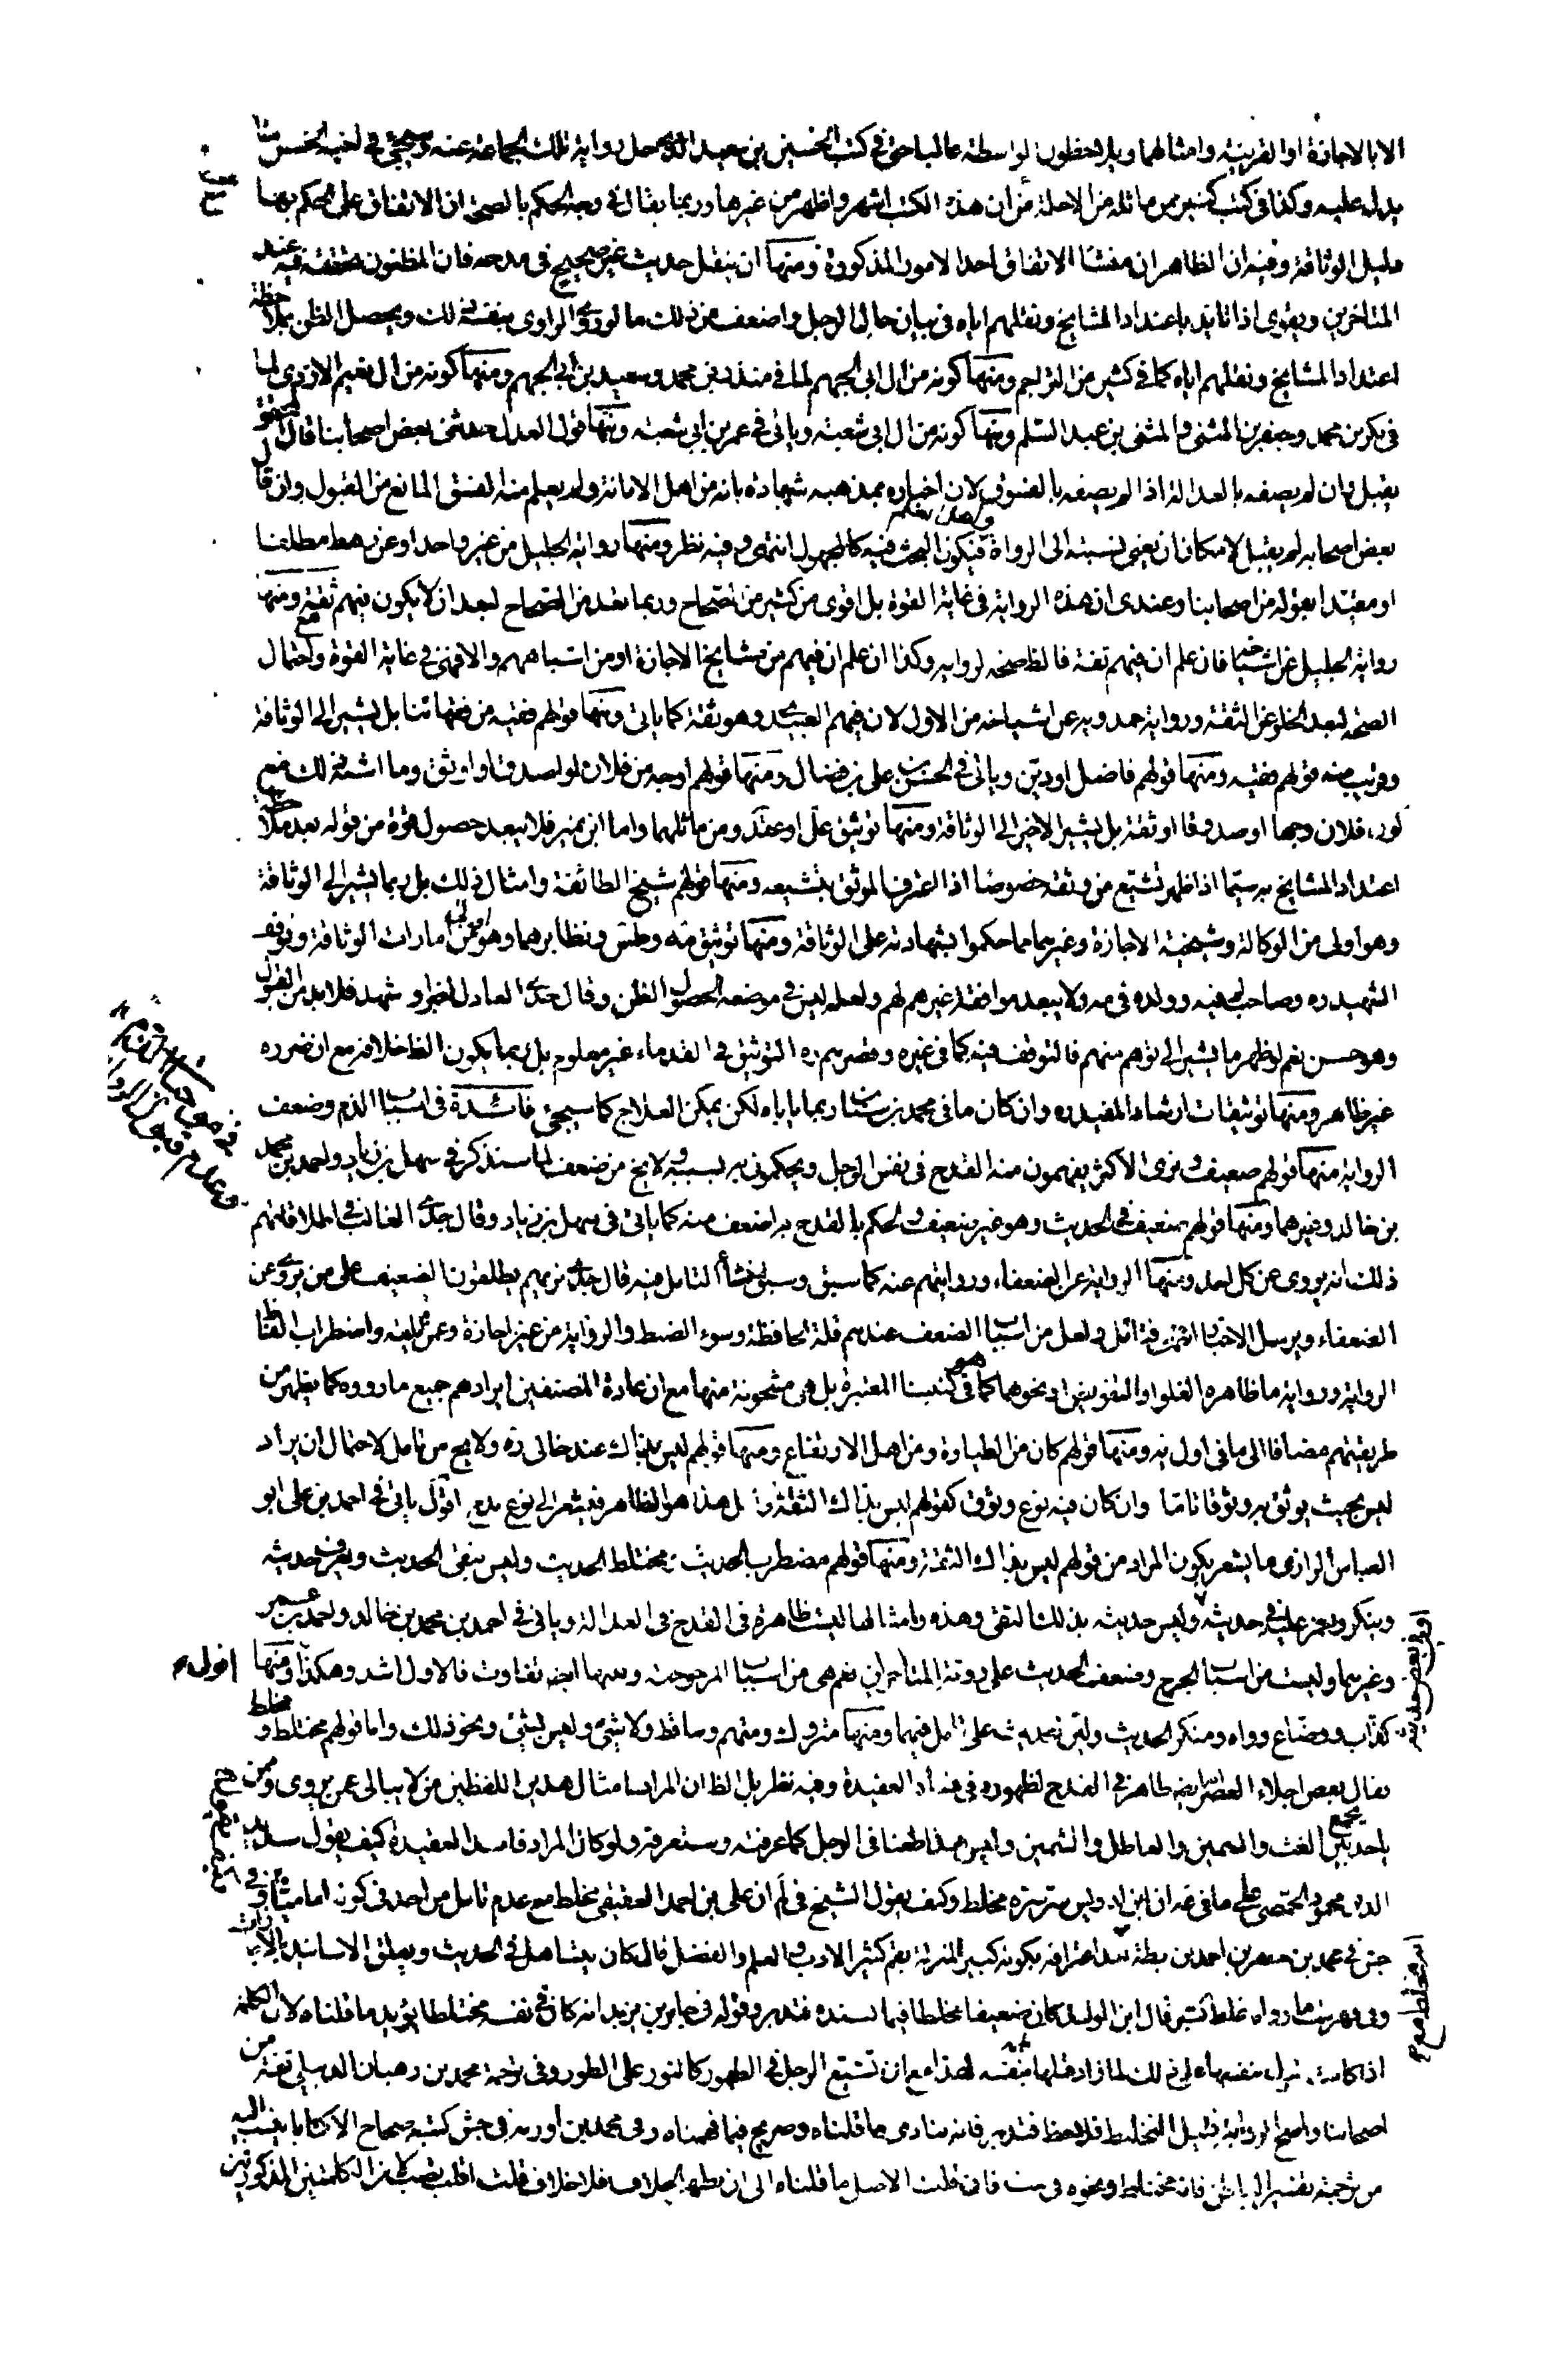 الا بالاجازة او القرينة وامثالهما ويلاحظون الواسطة غالبا حتى في كتب الحسين بن سعيد الذي حل رواية تلك الجماعة عنه وسيجيء في اخيه الحسن ما
يدل عليه وكذا في كتب كثير ممن ماثله من الاجلة مع ان هذه الكتب اشهر واظهر من غيرها وربما يقال في وجه الحكم بالصحة ان الاتفاق على الحكم بها
دليل الوثاقة وفيه ان الظاهر ان منشأ الاتفاق احد الامور المذكورة ومنها ان ينقل حديث غير صحيح في مدحه فان المظنون تحققه فيه عند
المتاخرين ويقوى اذا تايد باعتداد المشايخ ونقلهم اياه في بيان حال الرجل واضعف من ذلك ما لو روى الراوي بنفسه ذلك ويحصل الظن بملاحظة
اعتداد المشايخ ونقلهم اياه كما في كثير من التراجم ومنها كونه من ال ابي الجهم لما في منذر بن محمد وسعيد بن ابي الجهم ومنها كونه من ال نعيم الازدي لما
في بكر بن محمد وجعفر بن المثنى والمثنى بن عبد السلم ومنها كونه من ال ابي شعبة وياتي في عمر بن ابي شعبة ومنها قول العدل حدثني بعض اصحابنا قال المحقق
يقبل وان لم يصفه بالعدالة اذا لم يصفه بالفسوق لان اخباره بمذهبه شهادة بانه من اهل الامانة ولم يعلم منه الفسق المانع من القبول وان قال
بعض اصحابه لم يقبل لامكان ان يعني نسبته الى الرواة واهل العلم فيكون البحث فيه كالمجهول انتهى وفيه نظر ومنها رواية الجليل من غير واحد او عن رهط مطلقا
او مقيدا بقوله من اصحابنا وعندى ان هذه الرواية في غاية القوة بل اقوى من كثير من الصحاح وربما يعد من الصحاح لبعد ان لا يكون فيهم ثقة ومنها
رواية الجليل عن اشياخه فان علم ان فيهم ثقة فالظ صحة الرواية وكذا ان علم ان فيهم من مشايخ الاجازة او من اشباههم والا فهي في غاية القوة واحتمال
الصحة لبعد الخلو عن الثقة ورواية حمدويه عن اشياخه من الاول لان فيهم العبيدي وهو ثقة كما ياتي ومنها قولهم فقيه من فقهائنا بل يشير الى الوثاقة
وقريب منه قولهم فقيه ومنها قولهم فاضل او دين وياتي في الحسن بن علي بن فضال ومنها قولهم اوجه من فلان او اصدق او اوثق وما اشبه ذلك مع
كون فلان وجها او صدوقا او ثقة بل يشير الاخير الى الوثاقة ومنها توثيق عل او عقد ومن ماثلهما واما ابن نمير فلا يبعد حصول قوة من قوله بعد ملاحظة
اعتداد المشايخ به سيما اذا ظهر تشيع من وثقه خصوصا اذا اعترف الموثق بتشيعه ومنها قولهم شيخ الطائفة وامثال ذلك بل ربما يشير الى الوثاقة
وهو اولى من الوكالة وشيخية الاجازة وغيرهما مما حكموا بشهادته على الوثاقة ومنها توثيق مه وطس ونظايرهما وهو من امارات الوثاقة وتوقف
الشهيد ره وصاحب لم فيه وولده في مه ولا يبعد موافقة غيرهم لهم ولعله ليس في موضعه لحصول الظن وقال جدي العادل اخبر او شهد فلابد من القبول
وهو حسن نعم لو ظهر ما يشير الى توهم منهم فالتوقف فيه كما في غيره وقصرهم ره التوثيق في القدماء غير معلوم بل ربما يكون الظ خلافه مع ان ضرره
غير ظاهر ومنها توثيقات ارشاد المفيد ره وان كان ما في محمد بن سنان ربما ياباه لكن يمكن العلاج كما سيجيء فائدة في اسباب الذم وضعف
الرواية منها قولهم ضعيف ونرى الاكثر يفهمون منه القدح في نفس الرجل ويحكمون به بسببه ولا يخ من ضعف لما سنذكر في سهل بن زياد واحمد بن محمد
بن خالد وغيرهما ومنها قولهم ضعيف في الحديث وهو غير ضعيف والحكم بالقدح به اضعف منه كما ياتي في سهل بن زياد وقال جدي الغالب في اطلاقاتهم
ذلك انه يروى عن كل احد ومنها الرواية عن الضعفاء وروايتهم عنه كما سبق وسبق منشأ التامل فيه قال جدي نريهم يطلقون الضعيف على من يروى عن
الضعفاء ويرسل الاخبار انتهى فتامل ولعل من اسباب الضعف عندهم قلة الحافظة وسوء الضبط والرواية من غير اجازة وعمن لم يلقه واضطراب الفاظ
الرواية ورواية ما ظاهره الغلو او التفويض او نحوهما كما هو في كتبنا المعتبرة بل هي مشحونة منها مع ان عادة المصنفين ايرادهم جميع ما رووه كما يظهر من
طريقتهم مضافا الى ما في اول يه ومنها قولهم كان من الطيارة ومن اهل الارتفاع ومنها قولهم ليس بذاك عند خالي ره ولا يخ من تامل لاحتمال ان يراد
ليس بحيث يوثق به وثوقا تاما وان كان فيه نوع وثوق كقولهم ليس بذاك الثقة و لعل هذا هو الظاهر فيشعر الى نوع مدح اقول ياتي في احمد بن علي ابو
العباس الرازى ما يشعر بكون المراد من قولهم ليس بذاك الثقة ومنها قولهم مضطرب الحديث ومختلط الحديث وليس بنقي الحديث ويعرف حديثه
وينكر وغمز عليه في حديثه وليس حديثه بذلك النقي وهذه وامثالها ليست ظاهرة في القدح في العدالة وياتي في احمد بن محمد بن خالد واحمد بن عمر
وغيرهما وليست من اسباب الجرح وضعف الحديث على روية المتاخرين نعم هي من اسباب المرجوحية وبينها ايضا تفاوت فالاول اشد وهكذا ومنها
اقول
كذاب ووضاع وواه ومنكر الحديث ولين الحديث على تامل فيهما ومنها متروك ومتهم وساقط ولا شيء وليس بشيء ونحو ذلك واما قولهم مختلط ومخلط
فقال بعض اجلاء العصر انه ايضا ظاهر في القدح لظهوره في فساد العقيدة وفيه نظر بل الظ ان المراد بامثال هذين اللفظين من لا يبالي عمن يروى وممن
ياخذ يجمع بين الغث والسمين والعاطل والثمين وليس هذا طعنا في الرجل كما عرفته وستعرفه ولو كان المراد فاسد العقيدة كيف يقول سديد
الدين محمود الحمصي على ما في فه ان ابن ادريس قدس سره مخلط وكيف يقول الشيخ في لم ان علي بن احمد العقيقي مخلط مع عدم تامل من احد في كونه اماميا وفي
جش في محمد بن جعفر بن احمد بن بطة بعد اعترافه بكونه كبير المنزلة بقم كثير الادب والعلم والفضل قال كان يتساهل في الحديث ويعلق الاسانيد بالاجازات
وفي فهرست ما رواه غلط كثير قال ابن الوليد كان ضعيفا مخلطا فيما يسنده فتدبر وقوله في جابر بن يزيد انه كان في نفسه مختلطا يؤيد ما قلناه لان الكلمة
اذا كانت تدل بنفسها على ذلك لما زاد قبلها في نفسه فتدبر هذا مع ان تشيع الرجل في الظهور كالنور على الطور وفي ترجمة محمد بن وهبان الدبيلي ثقة من
اصحابنا واضح الرواية قليل التخليط فلاحظ وتدبر فانه ينادى بما قلناه وصريح فيما فهمناه وفي محمد بن اورمة في جش كتبه صحاح الا كتابا ينسب اليه
من ترجمة تفسير الباطن فانه مختلط ونحوه في ست فان قلت الاصل ما قلناه الى ان يظهر الخلاف فلا خلاف قلت اقلب تصب كلا من الكلمتين المذكورتين